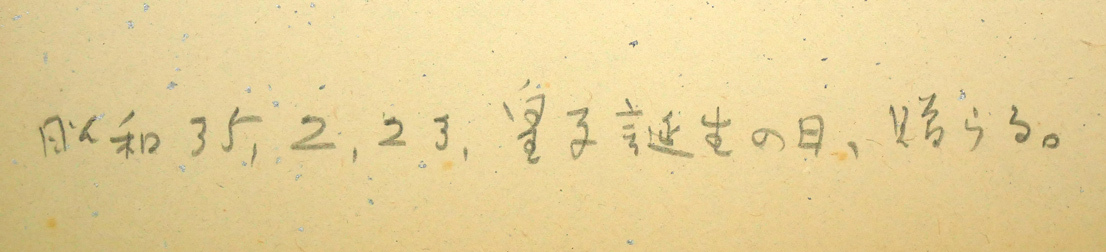 昭和35,2,23,皇子誕生の日、贈らる。